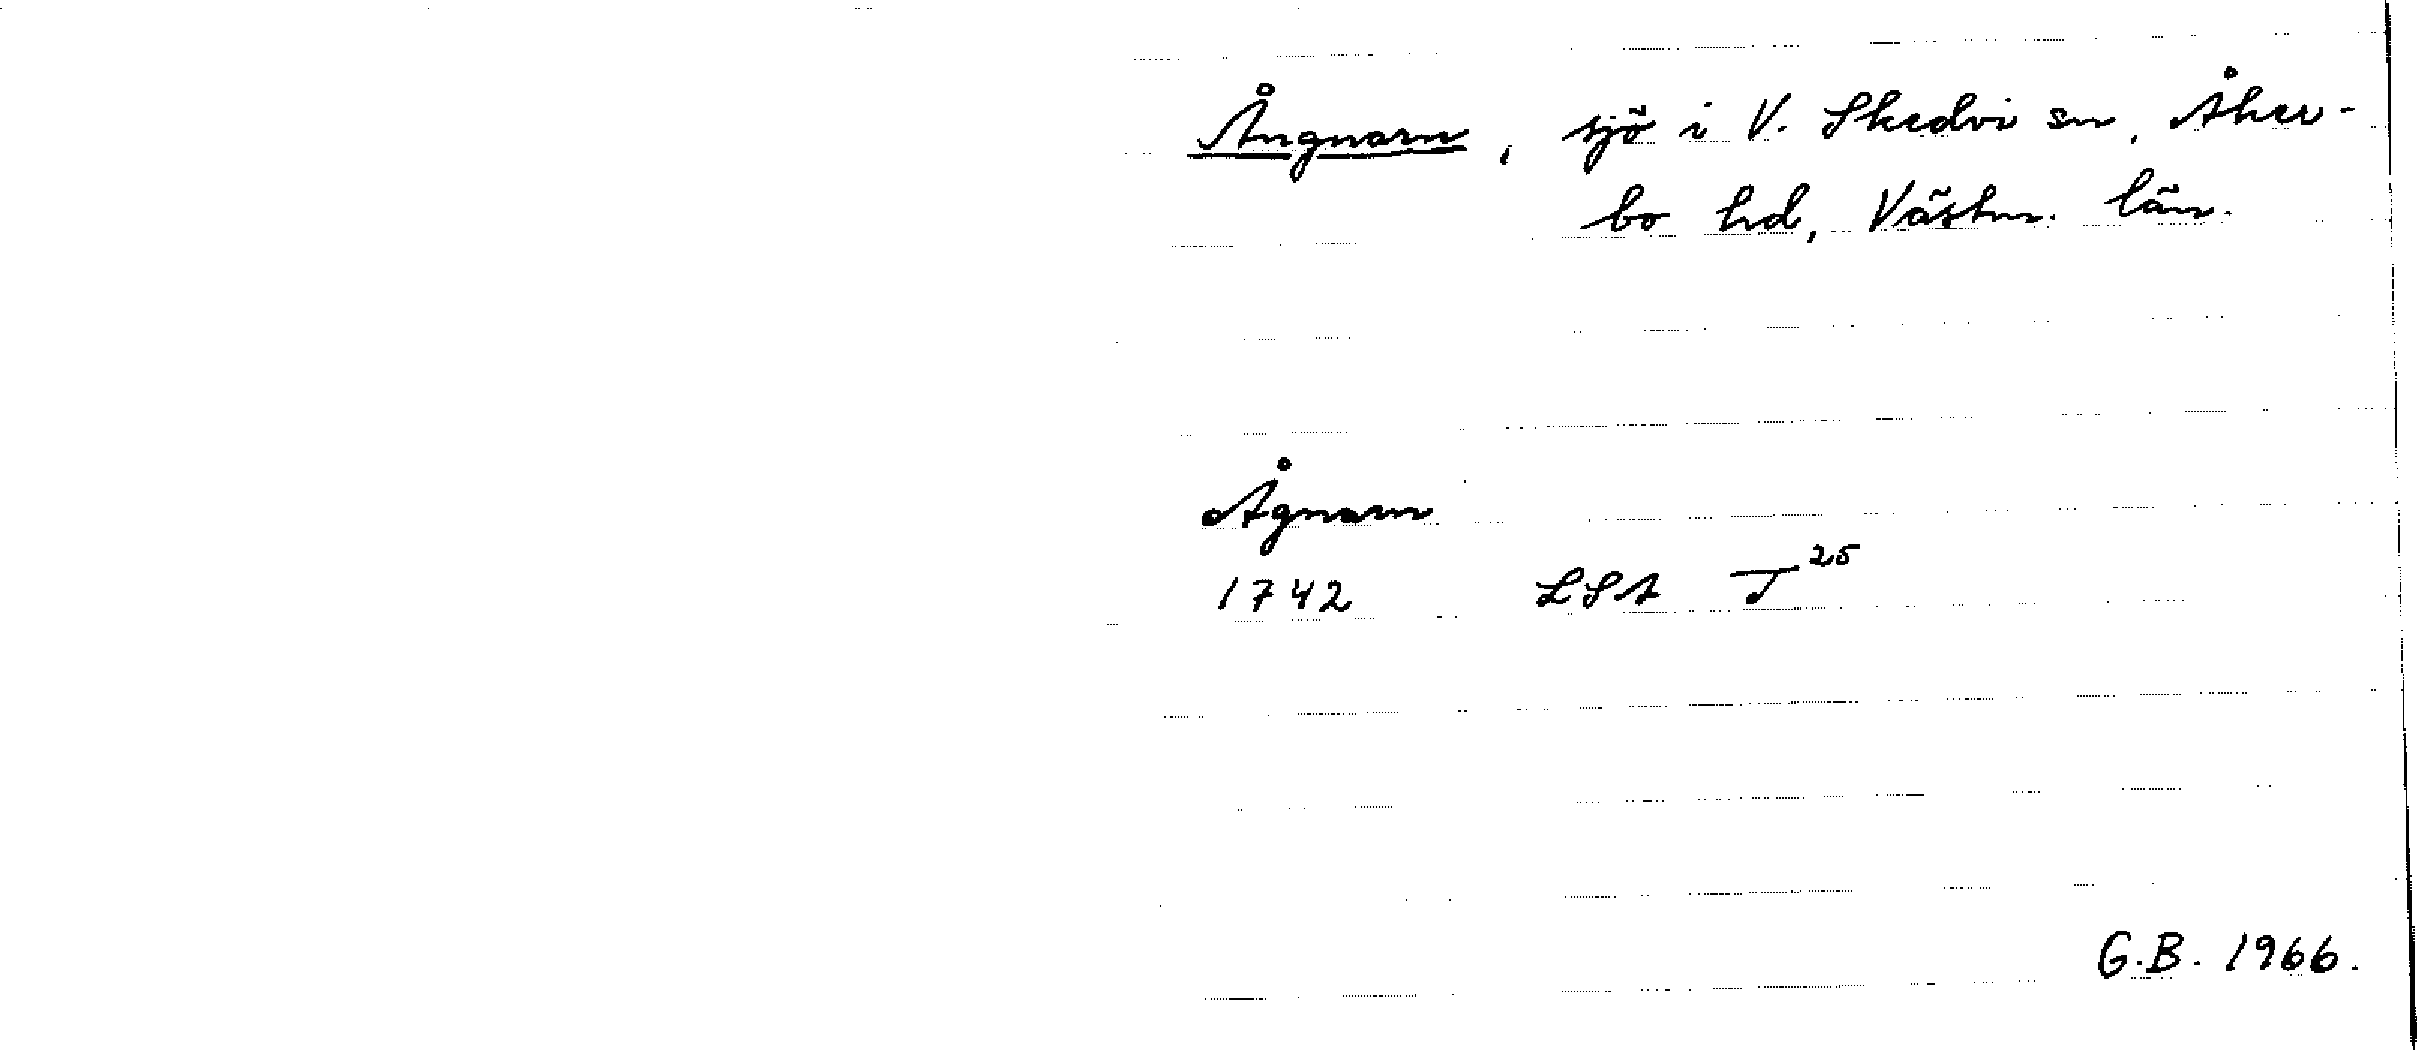 Ångnarn, sjö i V. Skedvi sn, Åker-
bo hd, Västm. län.
Ågnarn
1742 LSA T25
G.B. 1966.